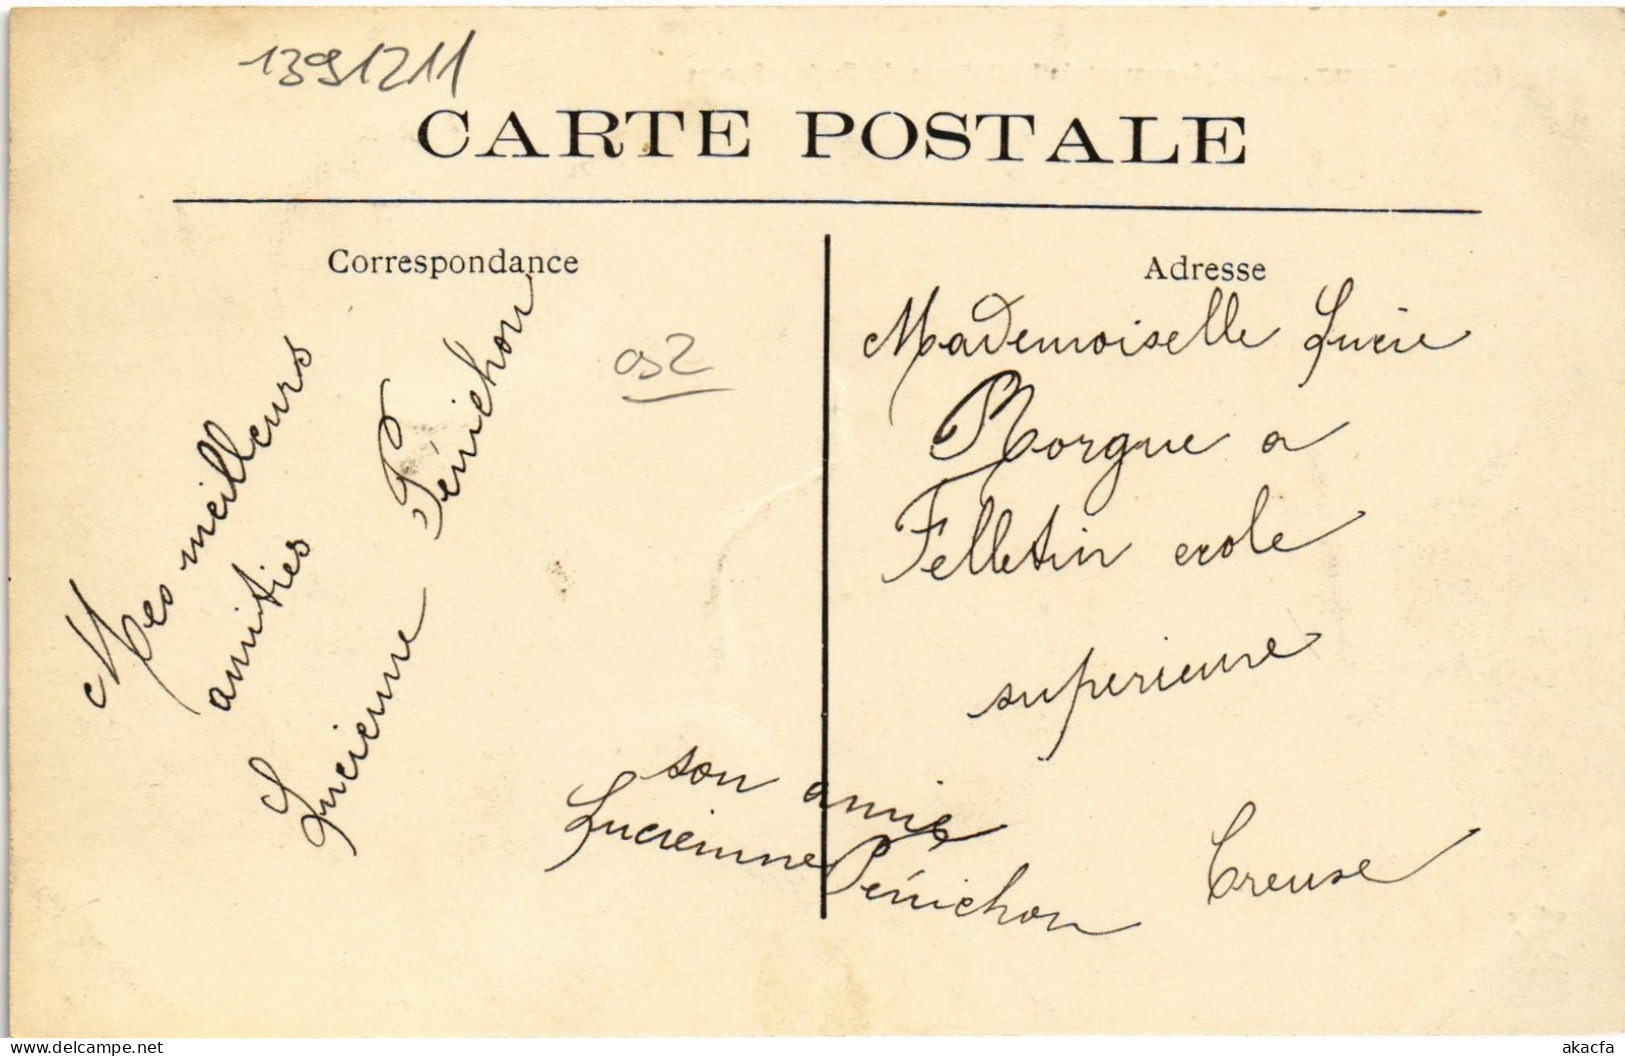 1391211
CARTE POSTALE
Correspondance
Adresse
Mes meilleurs
amitiés
Lucienne Pénichon
92
Mademoiselle Lucie
Rorgue a
Felletin ecole
superieure
Creuse
son amie
Lucienne Pénichon
akacfa